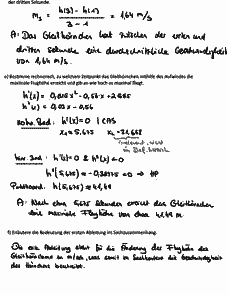 der dritten Sekunde.
m₃ = (h(3) - h(1)) / (3 - 1) = 1,64 m/s
A: Das Gleithörnchen hat zwischen der ersten und
dritten Sekunde eine durchschnittliche Geschwindigkeit
von 1,64 m/s.
e) Bestimme rechnerisch, zu welchem Zeitpunkt das Gleithörnchen mithilfe des Aufwindes die
maximale Flughöhe erreicht und gib an wie hoch es maximal fliegt.
h'(x) =
h''(x) =
h'(x) = 0 | CAS
x₁ = 5,675
relevant
h'(x) = 0 & h''(x) ≠ 0
h''(5,675) = < 0 ⇒ HP
h(5,675) ≈ 41,41
A: Nach etwa 5,675 Sekunden erreicht das Gleithörnchen
eine maximale Flughöhe von etwa
f) Erläutere die Bedeutung der ersten Ableitung im Sachzusammenhang.
Die erste Ableitung steht für die Änderung der Flughöhe des
Gleithörnchens in m/s, was somit im Sachkontext die Geschwindigkeit
des Hörnchens beschreibt.